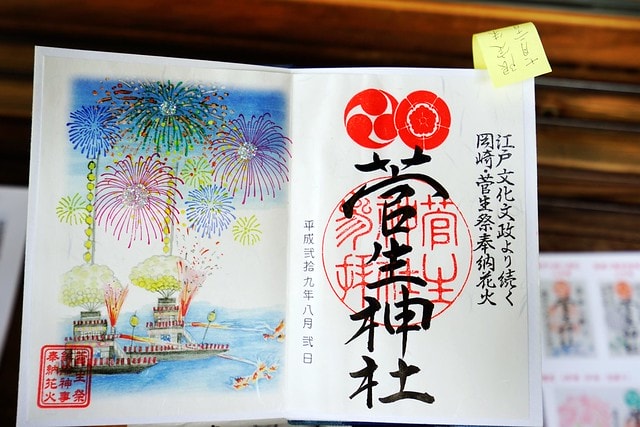 江戸文化文政より続く
岡崎・菅生祭奉納花火
菅生神社
菅生
参拝
平成弐拾九年八月 弐日
菅生祭
鉾船神事
奉納花火